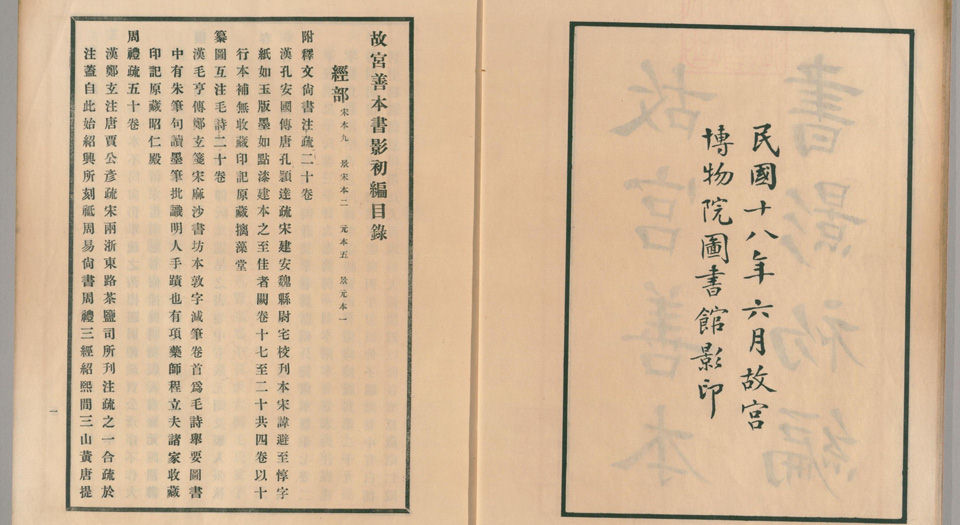 民國十八年六月故宮
博物院圖書館影印
故宮善本書影初編目錄
經部 宋本九 景宋本二 元本五 景元本一
附釋文尙書注疏二十卷
漢孔安國傳唐孔穎達疏宋建安魏縣尉宅校刋本宋諱避至惇字
紙如玉版墨如點漆建本之至佳者闕卷十七至二十共四卷以十
行本補無收藏印記原藏摛藻堂
纂圖互注毛詩二十卷
漢毛亨傳鄭玄箋宋麻沙書坊本敦字減筆卷首爲毛詩舉要圖書
中有朱筆句讀墨筆批識明人手蹟也有項藥師程立夫諸家收藏
印記原藏昭仁殿
周禮疏五十卷
漢鄭玄注唐賈公彥疏宋兩浙東路茶鹽司所刋注疏之一合疏於
注蓋自此始紹興所刻祗周易尙書周禮三經紹熙間三山黃唐提
一